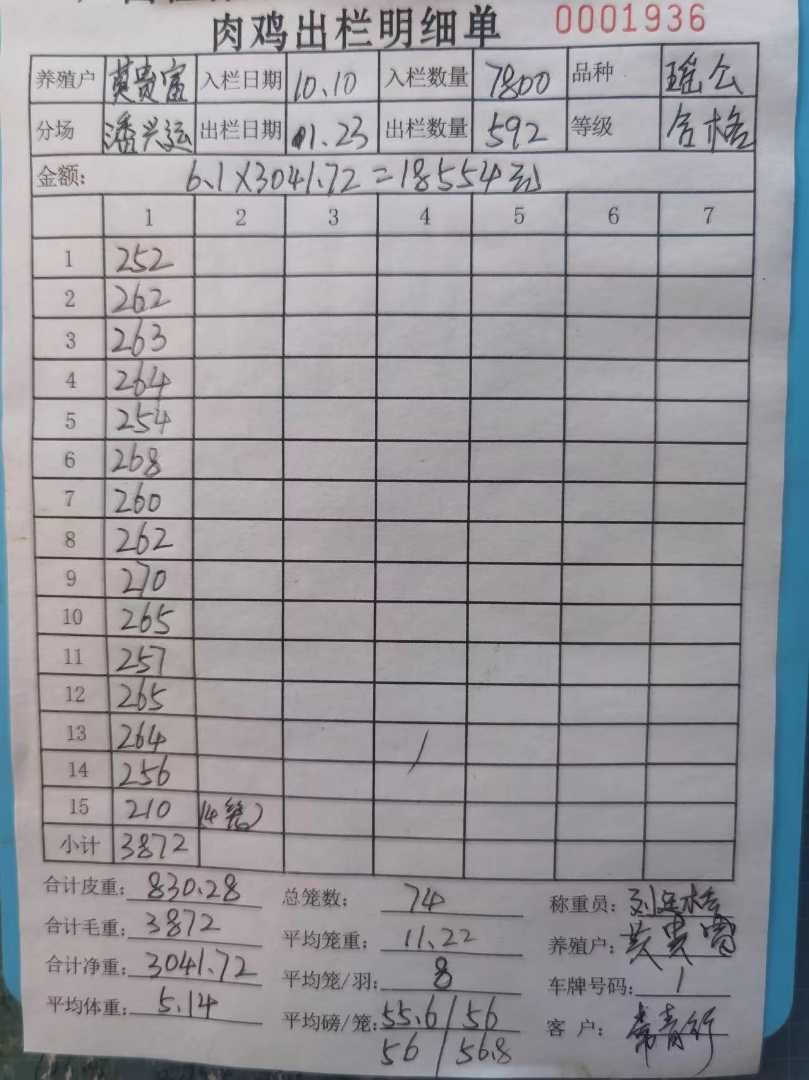 肉鸡出栏明细单 0001936
养殖户 莫贵富 入栏日期 10.10 入栏数量 7800 品种 瑶公
分场 潘兴运 出栏日期 1.23 出栏数量 592 等级 合格
金额: 6.1×3041.72=18554元
1 2 3 4 5 6 7
1 252
2 262
3 263
4 264
5 254
6 268
7 260
8 262
9 270
10 265
11 257
12 265
13 264
14 256
15 210 (4笼)
小计 3872
合计皮重: 830.28 总笼数: 74 称重员:
合计毛重: 3872 平均笼重: 11.22 养殖户: 莫贵富
合计净重: 3041.72 平均笼/羽: 8 车牌号码:
平均体重: 5.14 平均磅/笼: 55.6/56 客户: 常青行
56/56.8